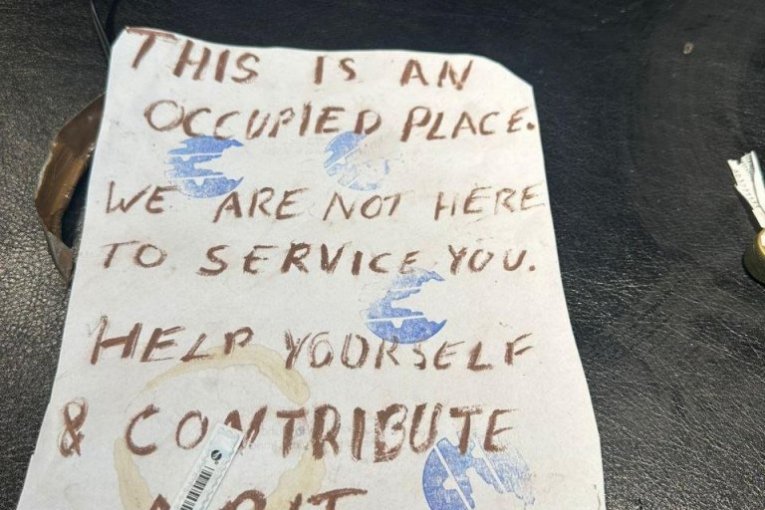 THIS IS AN
OCCUPIED PLACE.
WE ARE NOT HERE
TO SERVICE YOU.
HELP YOURSELF
& CONTRIBUTE
A BIT